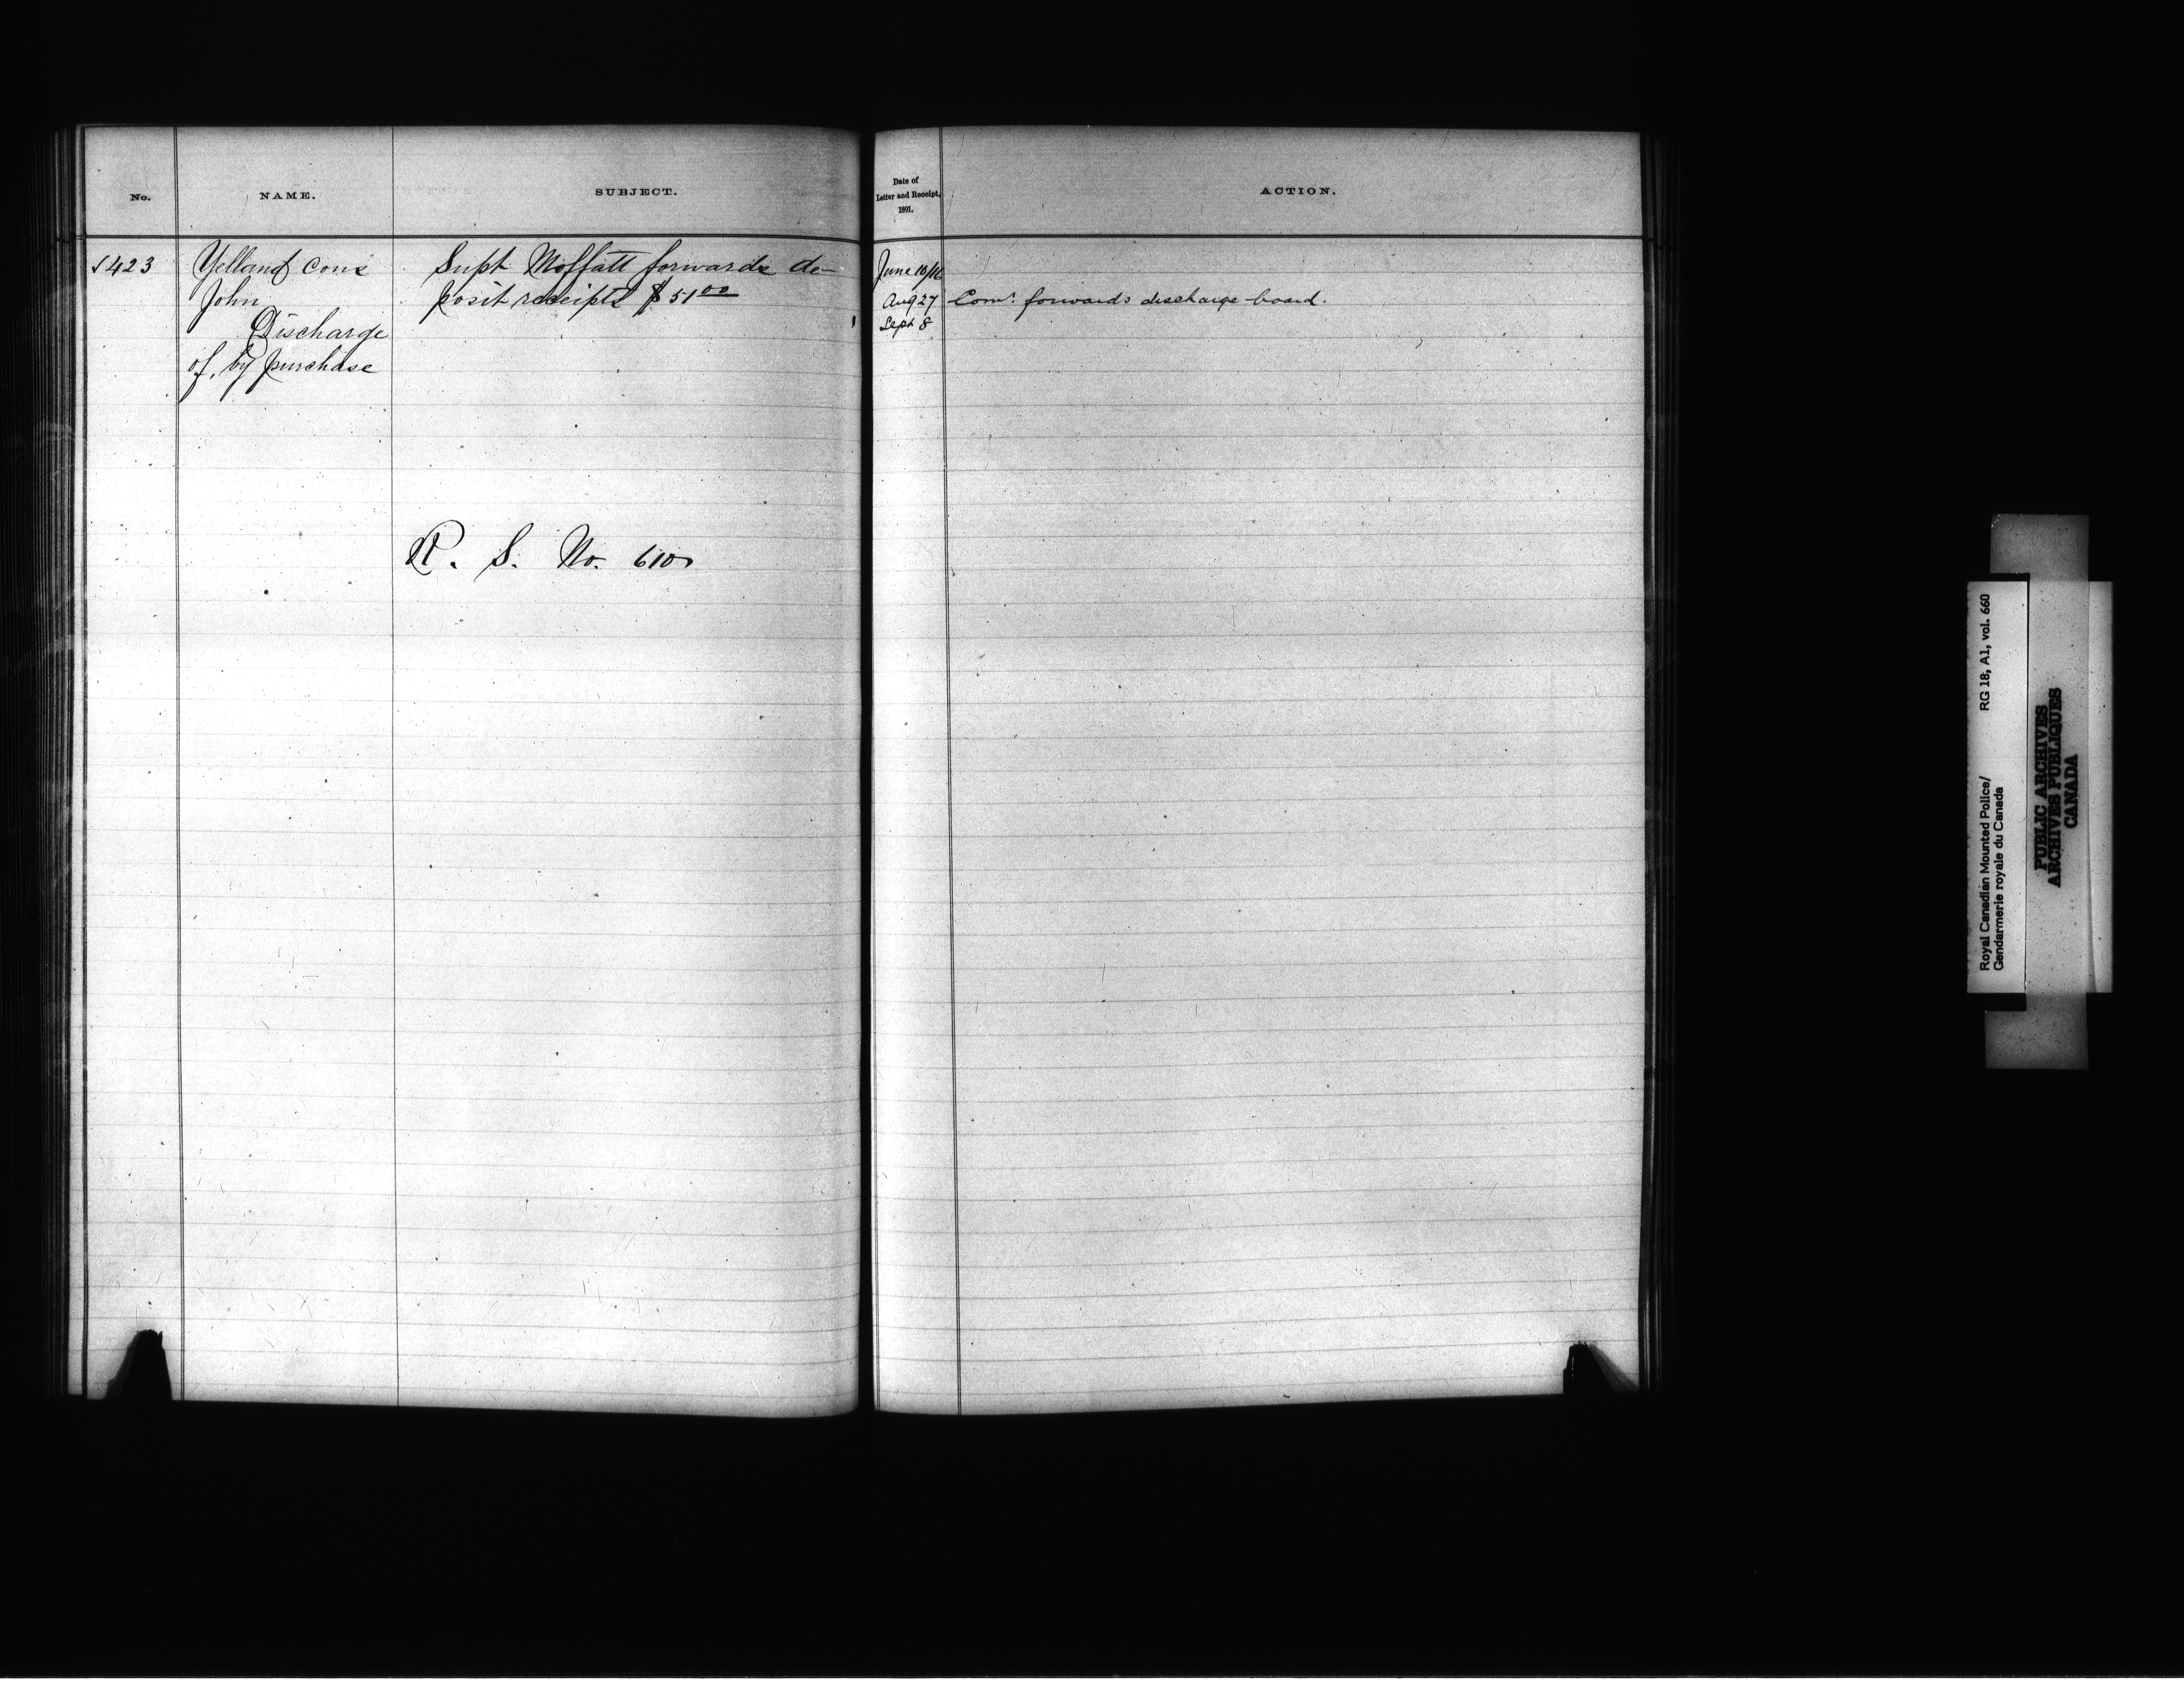 No.
NAME.
SUBJECT.
423
Yelland Cons
John
Discharge
of, by purchase
Supt Moffatt forwards de-
posit receipts $51 00
R. S. No. 610
Date of
Letter and Receipt,
1891.
ACTION.
June 10/16
Aug 27
Comr. forwards discharge board.
Sept 8
Royal Canadian Mounted Police/ RG 18, A1, vol. 660
Gendarmerie royale du Canada
PUBLIC ARCHIVES
ARCHIVES PUBLIQUES
CANADA